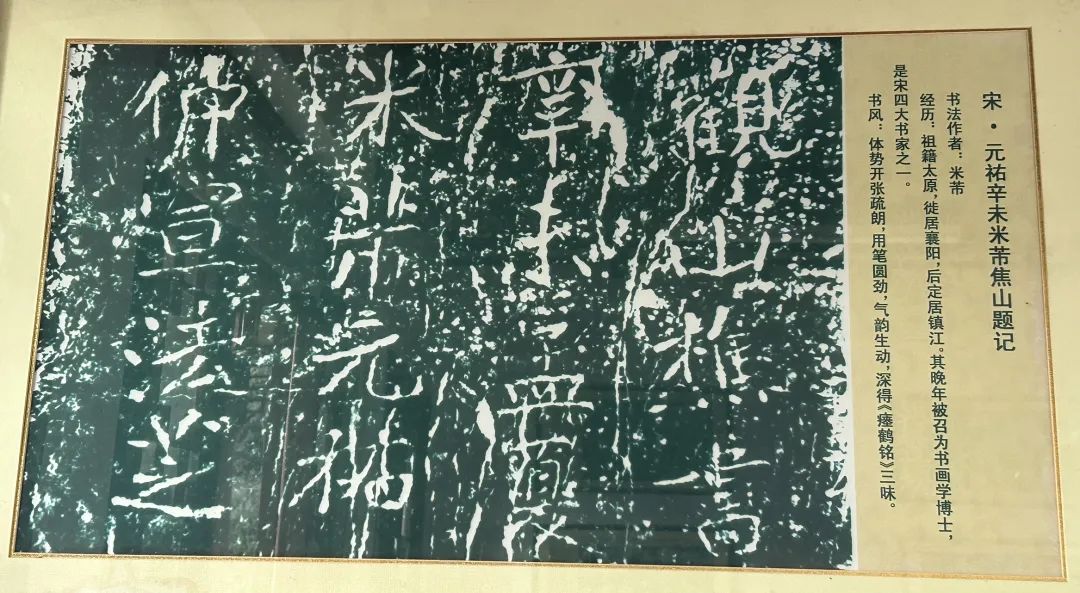 宋·元祐辛未米芾焦山题记
书法作者：米芾
经历：祖籍太原，徙居襄阳，后定居镇江。其晚年被召为书画学博士，
是宋四大书家之一。
书风：体势开张疏朗，用笔圆劲，气韵生动，深得《瘗鹤铭》三味。
仲宣法芝
米芾元祐
辛未孟夏
觀山樵書